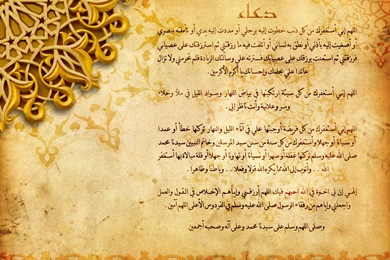 دعاء
اللهم إني أستغفرك من كل ذنب خطوت إليه برجلي أو مددت إليه يدي أو تأملته ببصري
أو أصغيت إليه بأذني أو نطق به لساني أو أتلفت فيه ما رزقتني ثم استرزقتك على عصياني
فرزقتني ثم استعنت برزقك على عصيانك فسترته علي وسألتك الزيادة فلم تحرمني ولا تزال
عائدا علي بحلمك وإحسانك يا أكرم الأكرمين.
اللهم إني أستغفرك من كل سيئة ارتكبتها في بياض النهار وسواد الليل في ملأ وخلاء
وسر وعلانية وأنت ناظر إلي.
اللهم إني أستغفرك من كل فريضة أوجبتها علي في آناء الليل والنهار تركتها خطأ أو عمدا
أو نسيانا أو جهلا وأستغفرك من كل سنة من سنن سيد المرسلين وخاتم النبيين سيدنا محمد
صلى الله عليه وسلم تركتها غفلة أو سهوا أو نسيانا أو تهاونا أو جهلا أو قلة مبالاة بها أستغفر
الله .. وأتوب إلى الله مما يكره الله قولا وفعلا .. وباطنا وظاهرا.
إلهي إن لي إخوة في الله أحبهم فيك اللهم ارزقني وإياهم الإخلاص في القول والعمل
واجعلني وإياهم من رفقاء الرسول صلى الله عليه وسلم في الفردوس الأعلى اللهم آمين.
وصلى اللهم وسلم على سيدنا محمد وعلى آله وصحبه أجمعين